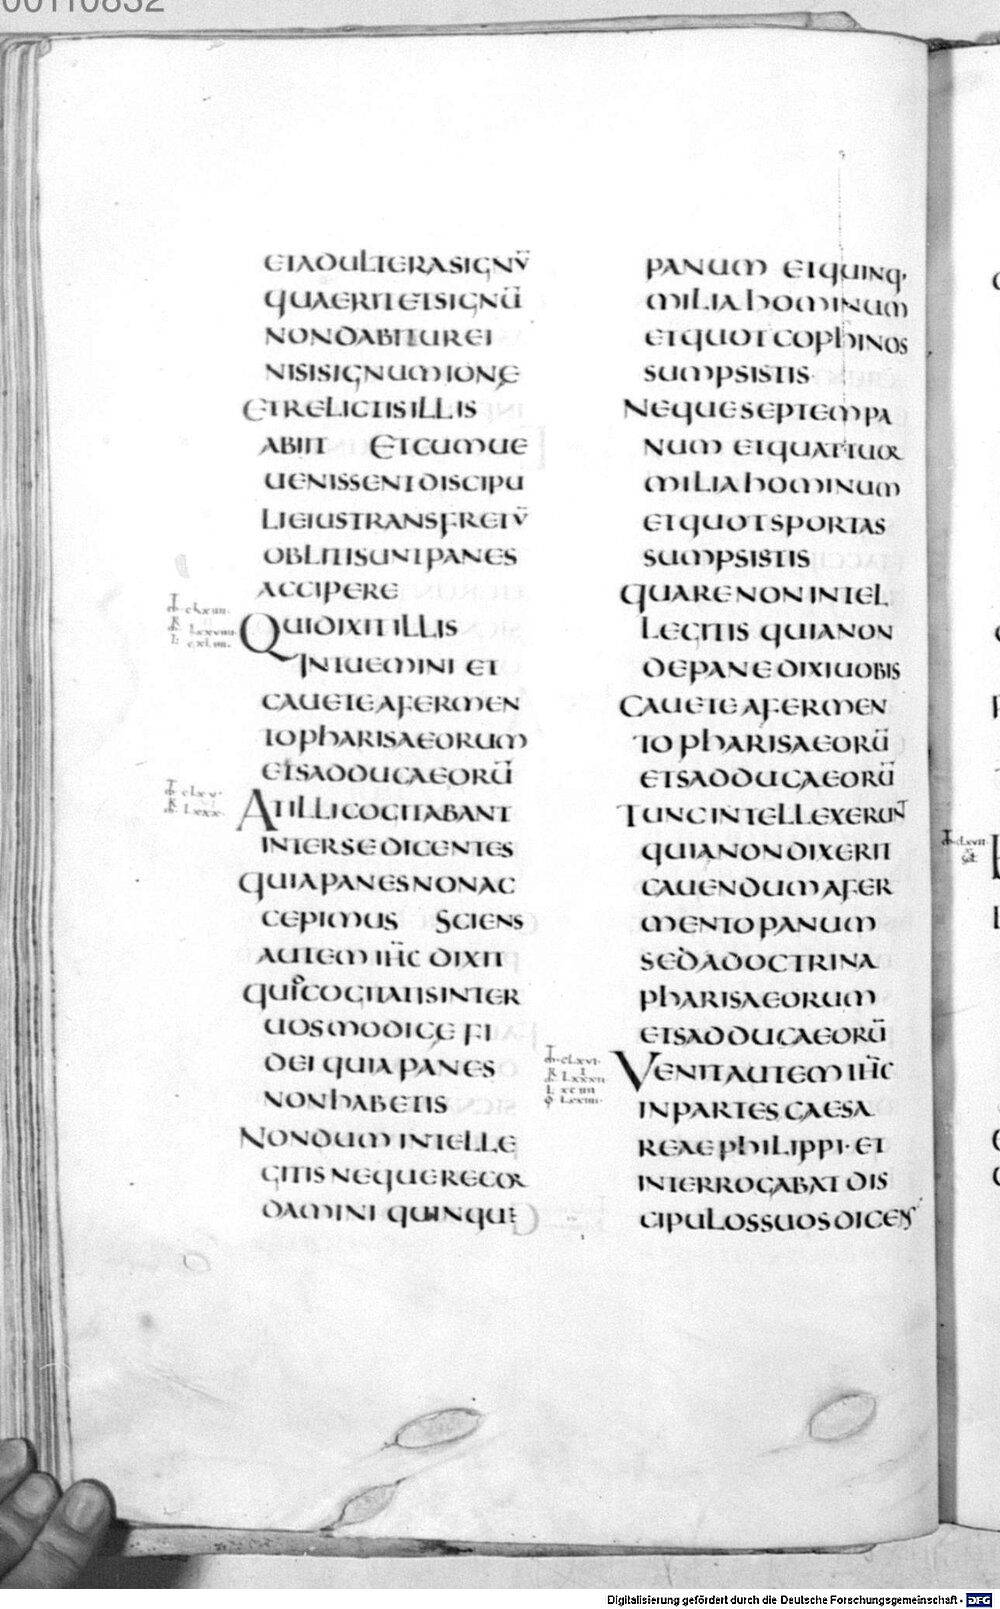 00110832
ETADULTERASIGNV̄
QUAERITETSIGNŪ
NONDABITUREI
NISISIGNUMIONĘ
ETRELICTISILLIS
ABIIT ETCUMUE
UENISSENTDISCIPU
LIEIUSTRANSFRETV̄
OBLITISUNTPANES
ACCIPERE
QUIDIXITILLIS
INTUEMINI ET
CAUETEAFERMEN
TOPHARISAEORUM
ETSADDUCAEORŪ
ATILLICOGITABANT
INTERSEDICENTES
QUIAPANESNONAC
CEPIMUS SCIENS
AUTEM IHC̄ DIXIT
QUIDCOGITATISINTER
UOSMODICĘ FI
DEI QUIA PANES
NONHABETIS
NONDUM INTELLE
GITIS NEQUERECOR
DAMINI QUINQUE
PANUM ETQUINQ·
MILIA HOMINUM
ETQUOTCOPHINOS
SUMPSISTIS
NEQUESEPTEMPA
NUM ETQUATTUOR
MILIA HOMINUM
ETQUOTSPORTAS
SUMPSISTIS
QUARENONINTEL
LEGITIS QUIANON
DEPANEDIXIUOBIS
CAUETEAFERMEN
TO PHARISAEORŪ
ETSADDUCAEORŪ
TUNCINTELLEXERUNT
QUIANONDIXERIT
CAUENDUMAFER
MENTOPANUM
SEDADOCTRINA
PHARISAEORUM
ETSADDUCAEORŪ
VENITAUTEM IHC̄
INPARTES CAESA
REAE PHILIPPI· ET
INTERROGABAT DIS
CIPULOSSUOSDICENS
Digitalisierung gefördert durch die Deutsche Forschungsgemeinschaft - DFG